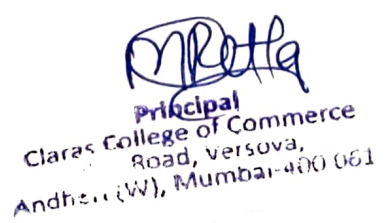 Principal
Claras College of Commerce
Road, Versova,
Andheri (W), Mumbai-400 061